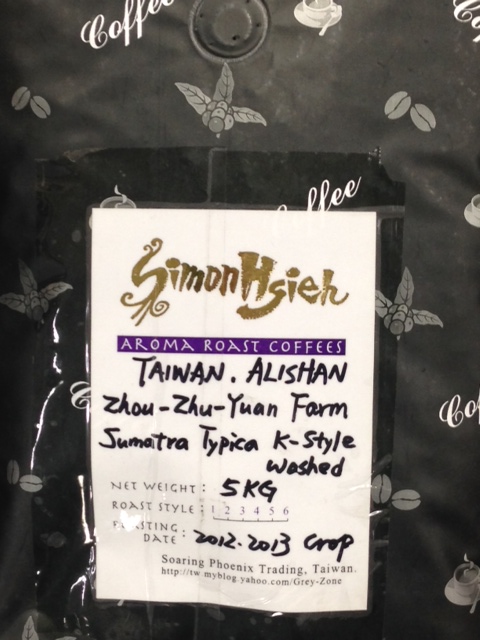 Coffee
Coffee
Simon Hsieh
AROMA ROAST COFFEES
TAIWAN. ALISHAN
Zhou-Zhu-Yuan Farm
Sumatra Typica K-Style
washed
NET WEIGHT: 5KG
ROAST STYLE: 1 2 3 4 5 6
ROASTING
DATE: 2012.2013 crop
Soaring Phoenix Trading, Taiwan.
http://tw.myblog.yahoo.com/Grey-Zone
Co